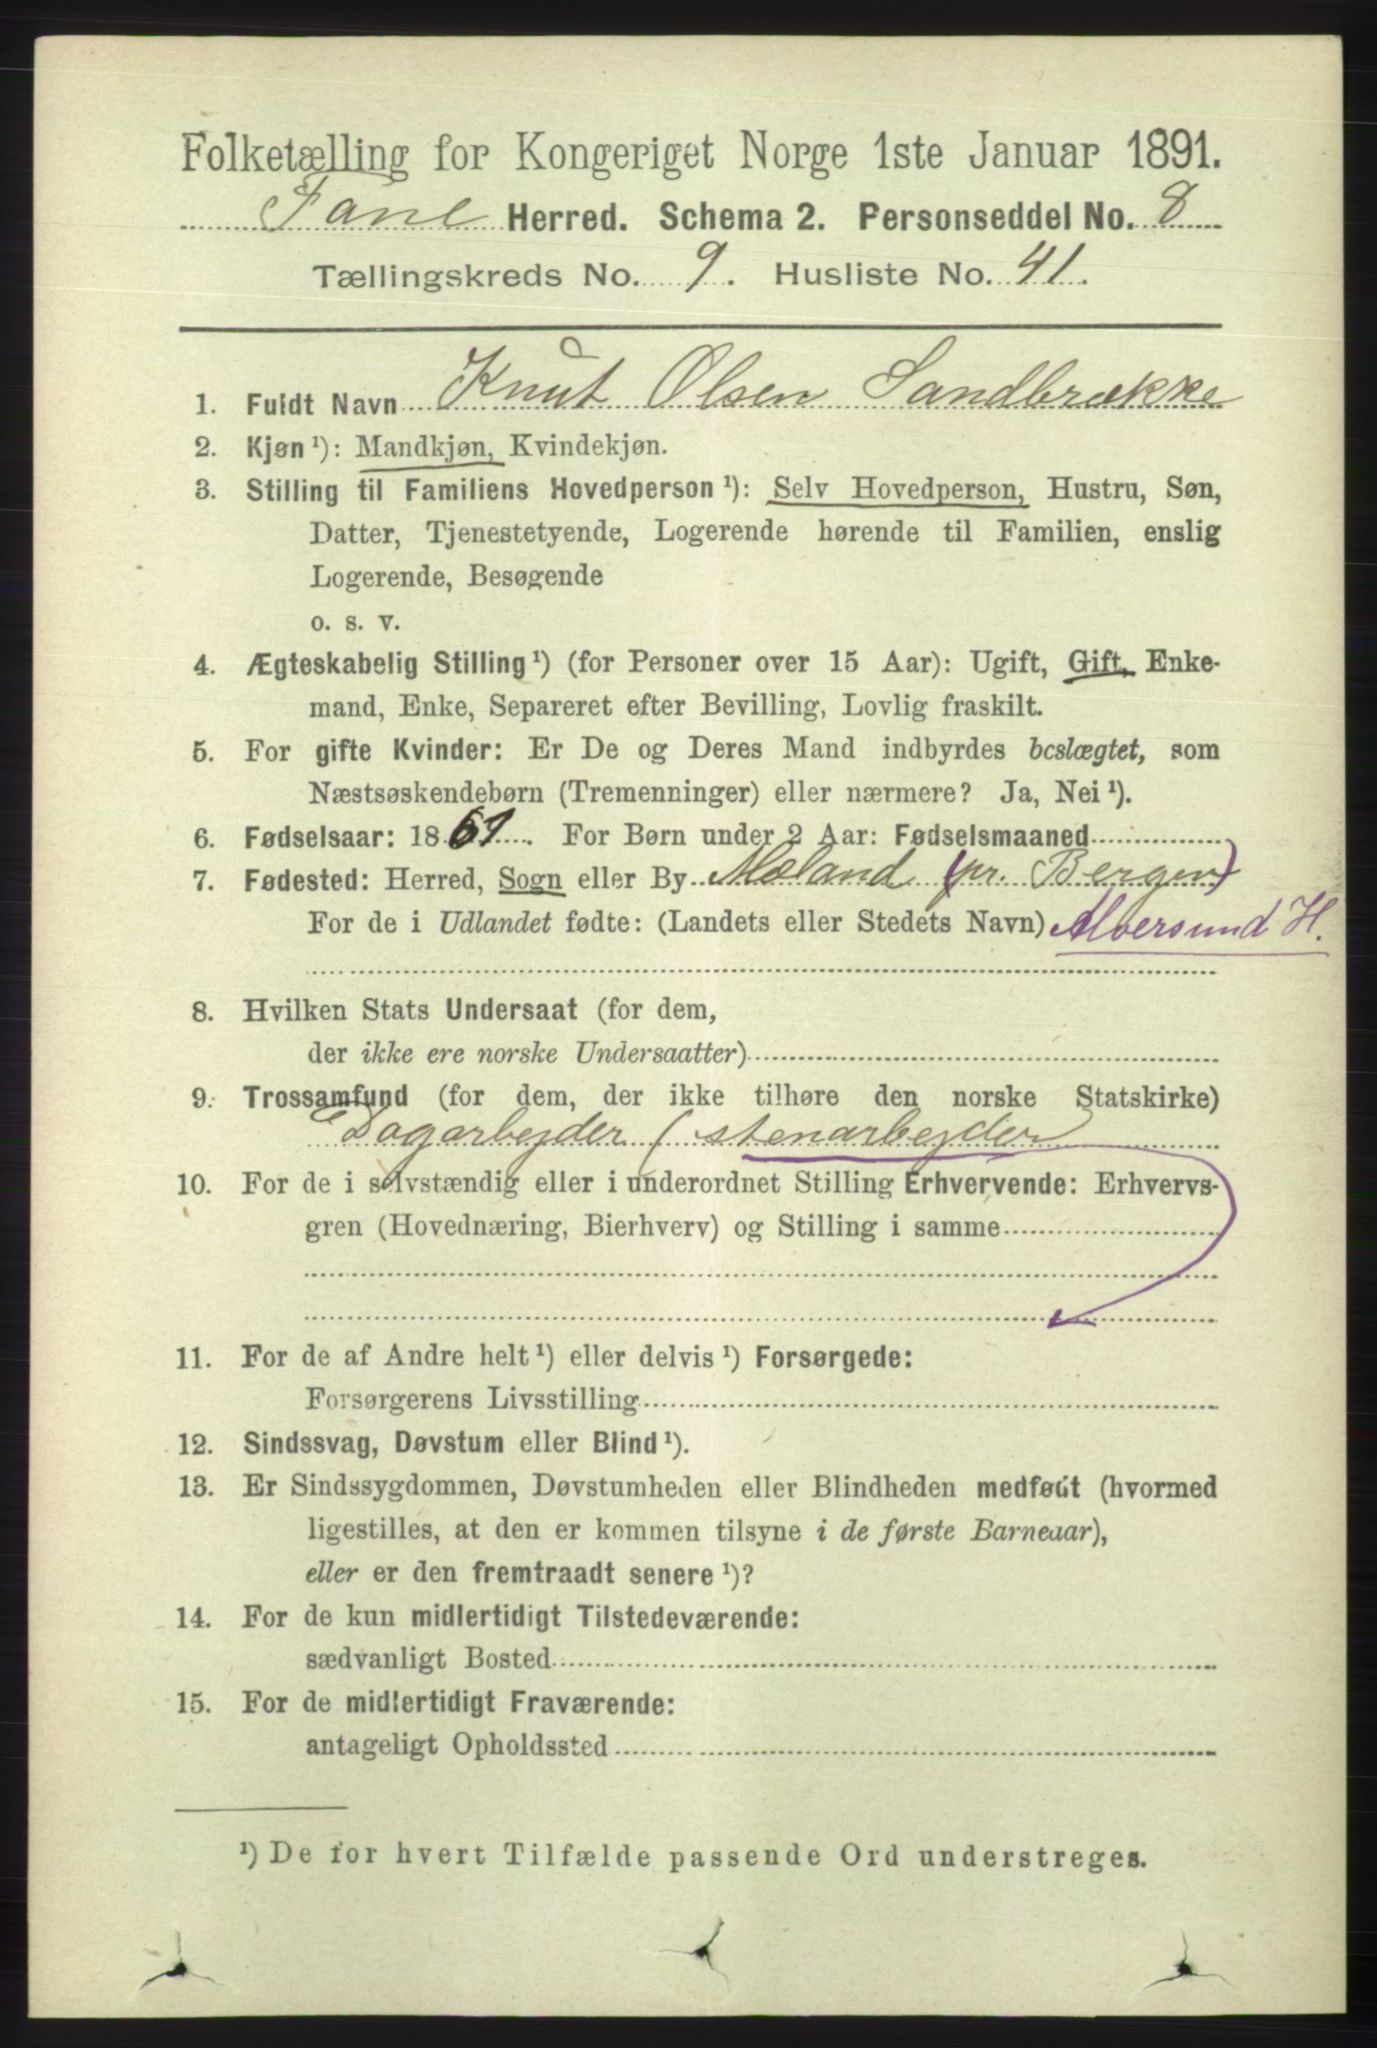 Folketælling for Kongeriget Norge 1ste Januar 1891.
Fane Herred. Schema 2. Personseddel No. 8
Tællingskreds No. 9. Husliste No. 41.
1. Fuldt Navn Knut Olsen Sandbrække
2. Kjøn ¹): Mandkjøn, Kvindekjøn.
3. Stilling til Familiens Hovedperson ¹): Selv Hovedperson, Hustru, Søn,
Datter, Tjenestetyende, Logerende hørende til Familien, enslig
Logerende, Besøgende
o. s. v.
4. Ægteskabelig Stilling ¹) (for Personer over 15 Aar): Ugift, Gift, Enke-
mand, Enke, Separeret efter Bevilling, Lovlig fraskilt.
5. For gifte Kvinder: Er De og Deres Mand indbyrdes beslægtet, som
Næstsøskendebørn (Tremenninger) eller nærmere? Ja, Nei ¹).
6. Fødselsaar: 1861. For Børn under 2 Aar: Fødselsmaaned
7. Fødested: Herred, Sogn eller By Mæland (pr. Bergen)
For de i Udlandet fødte: (Landets eller Stedets Navn) Alversund H.
8. Hvilken Stats Undersaat (for dem,
der ikke ere norske Undersaatter)
9. Trossamfund (for dem, der ikke tilhøre den norske Statskirke)
Dagarbejder (stenarbejder
10. For de i selvstændig eller i underordnet Stilling Erhvervende: Erhvervs-
gren (Hovednæring, Bierhverv) og Stilling i samme
11. For de af Andre helt ¹) eller delvis ¹) Forsørgede:
Forsørgerens Livsstilling
12. Sindssvag, Døvstum eller Blind ¹).
13. Er Sindssygdommen, Døvstumheden eller Blindheden medfødt (hvormed
ligestilles, at den er kommen tilsyne i de første Barneaar),
eller er den fremtraadt senere ¹)?
14. For de kun midlertidigt Tilstedeværende:
sædvanligt Bosted
15. For de midlertidigt Fraværende:
antageligt Opholdssted
¹) De for hvert Tilfælde passende Ord understreges.